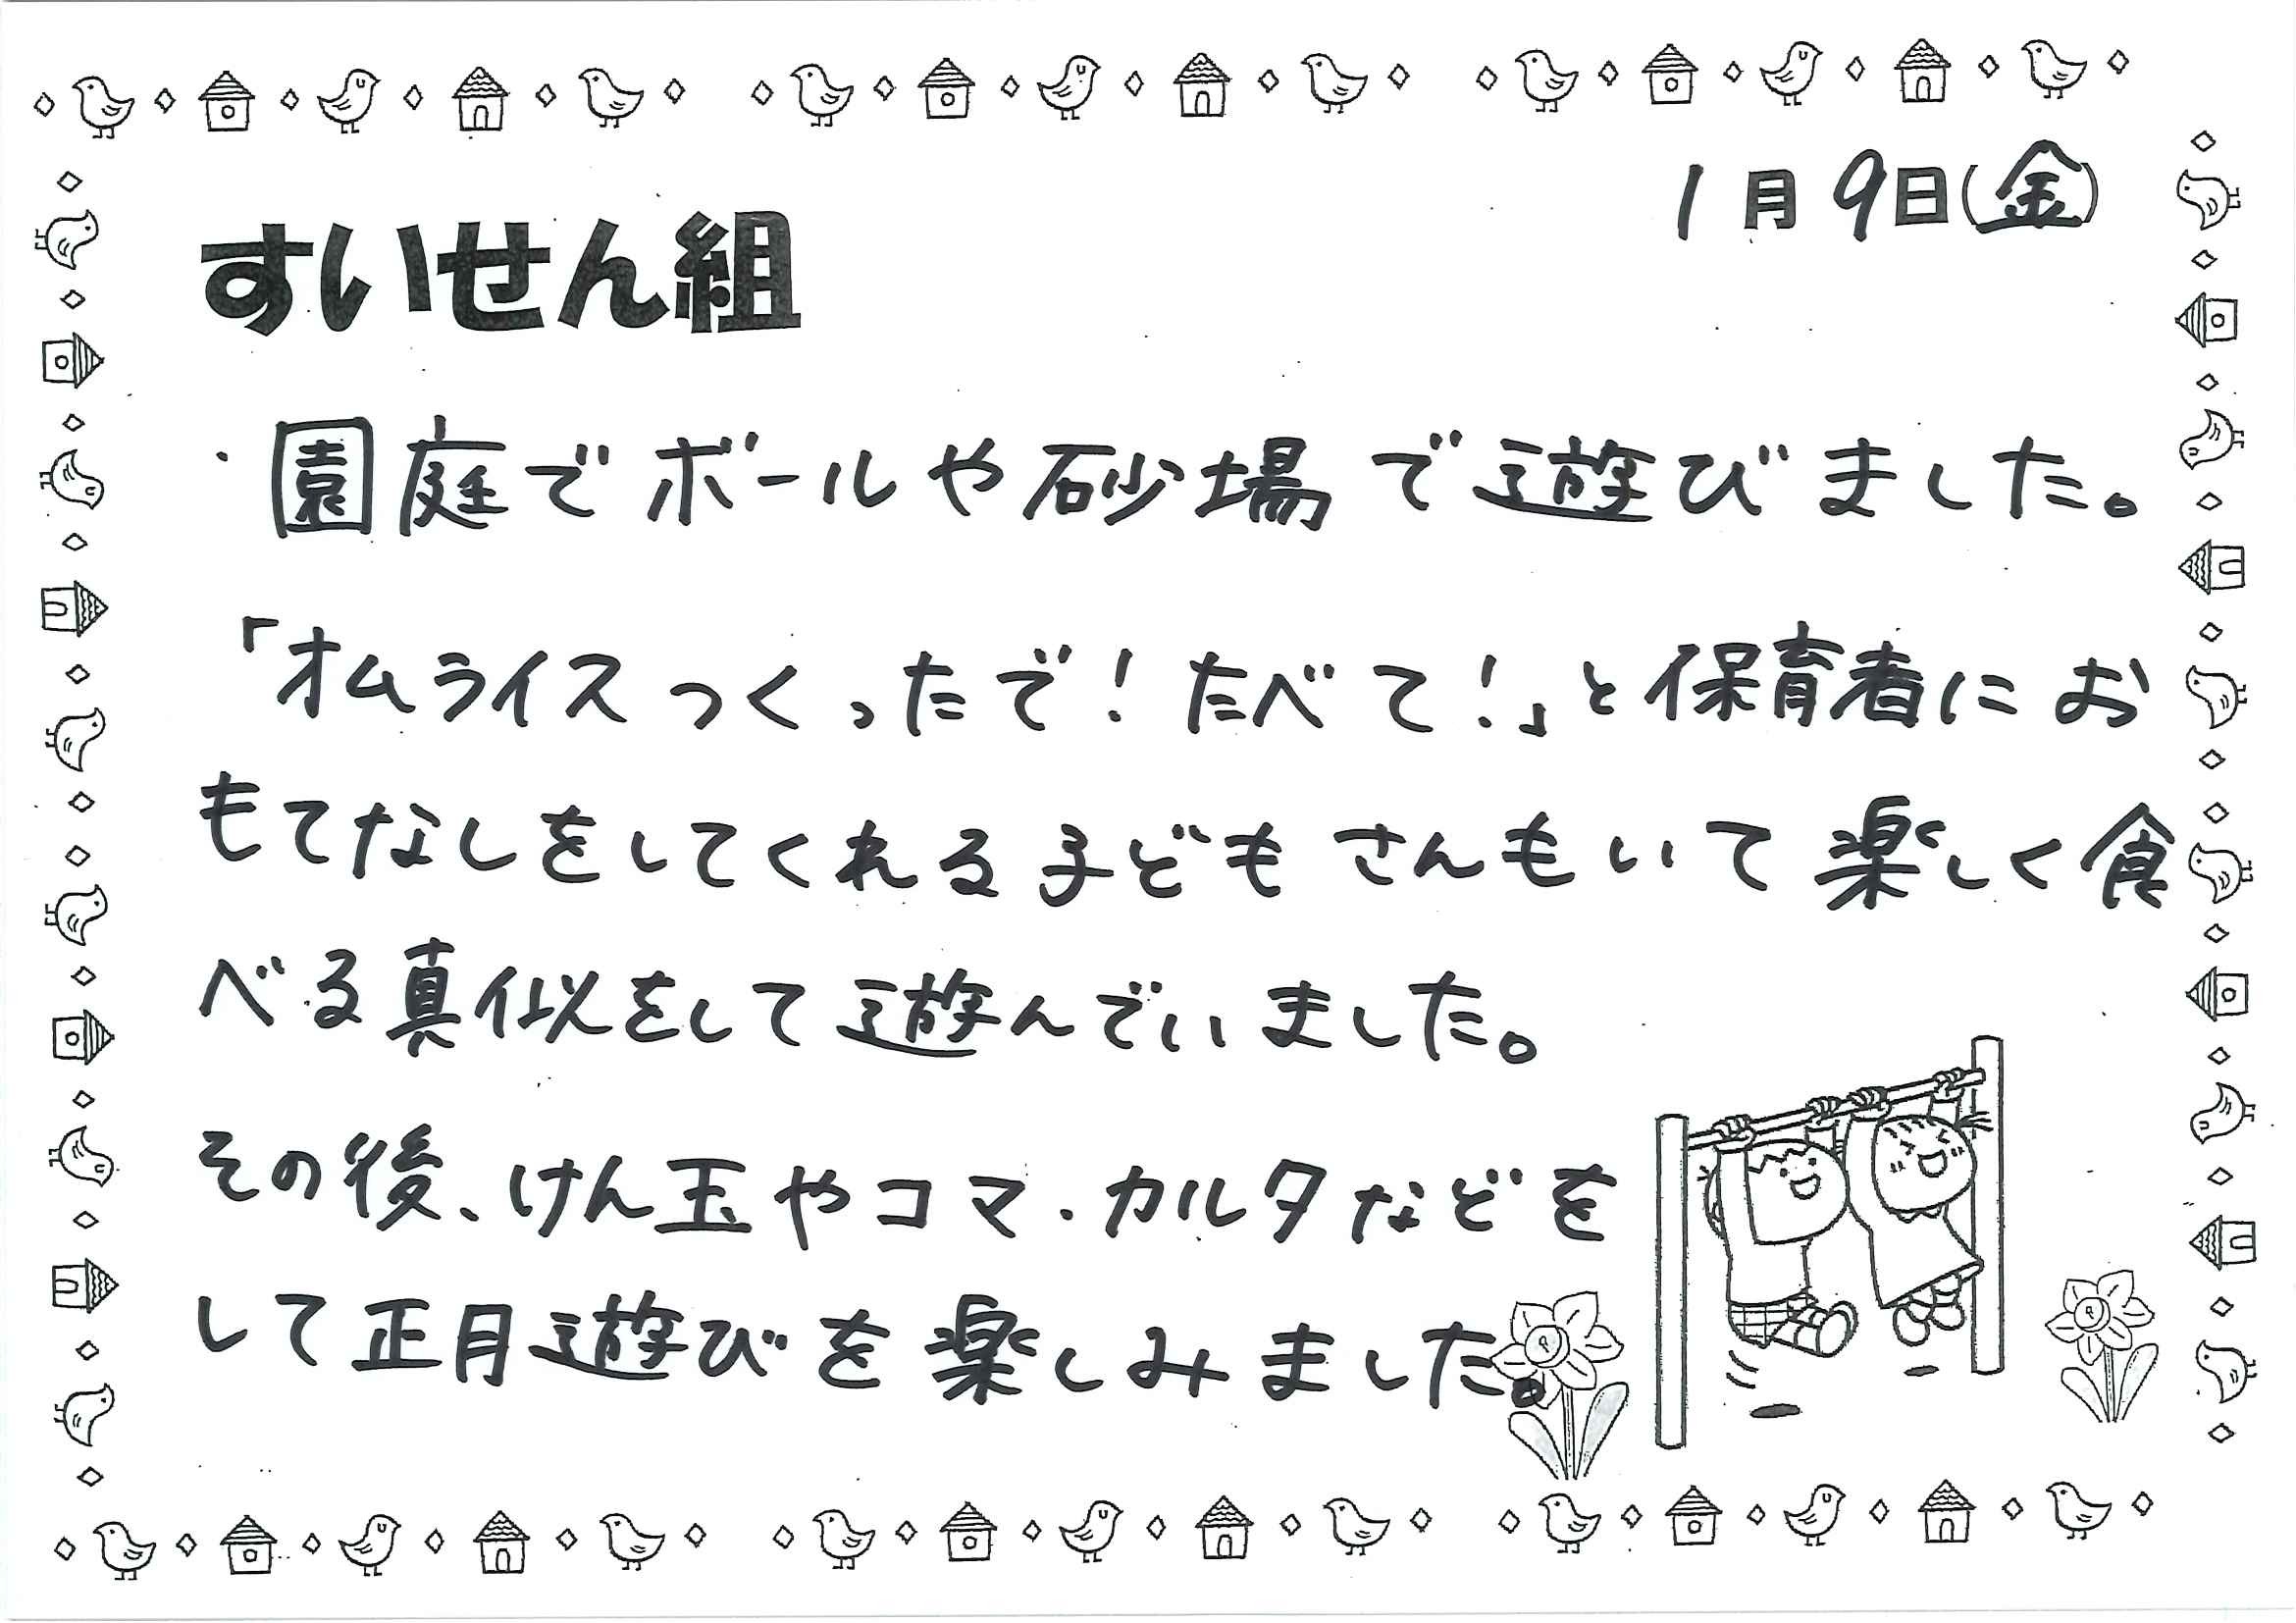 1月9日(金)
すいせん組
・園庭でボールや砂場で遊びました。
「オムライスつくったで！たべて！」と保育者にお
もてなしをしてくれる子どもさんもいて楽しく食
べる真似をして遊んでいました。
その後、けん玉やコマ・カルタなどを
して正月遊びを楽しみました。